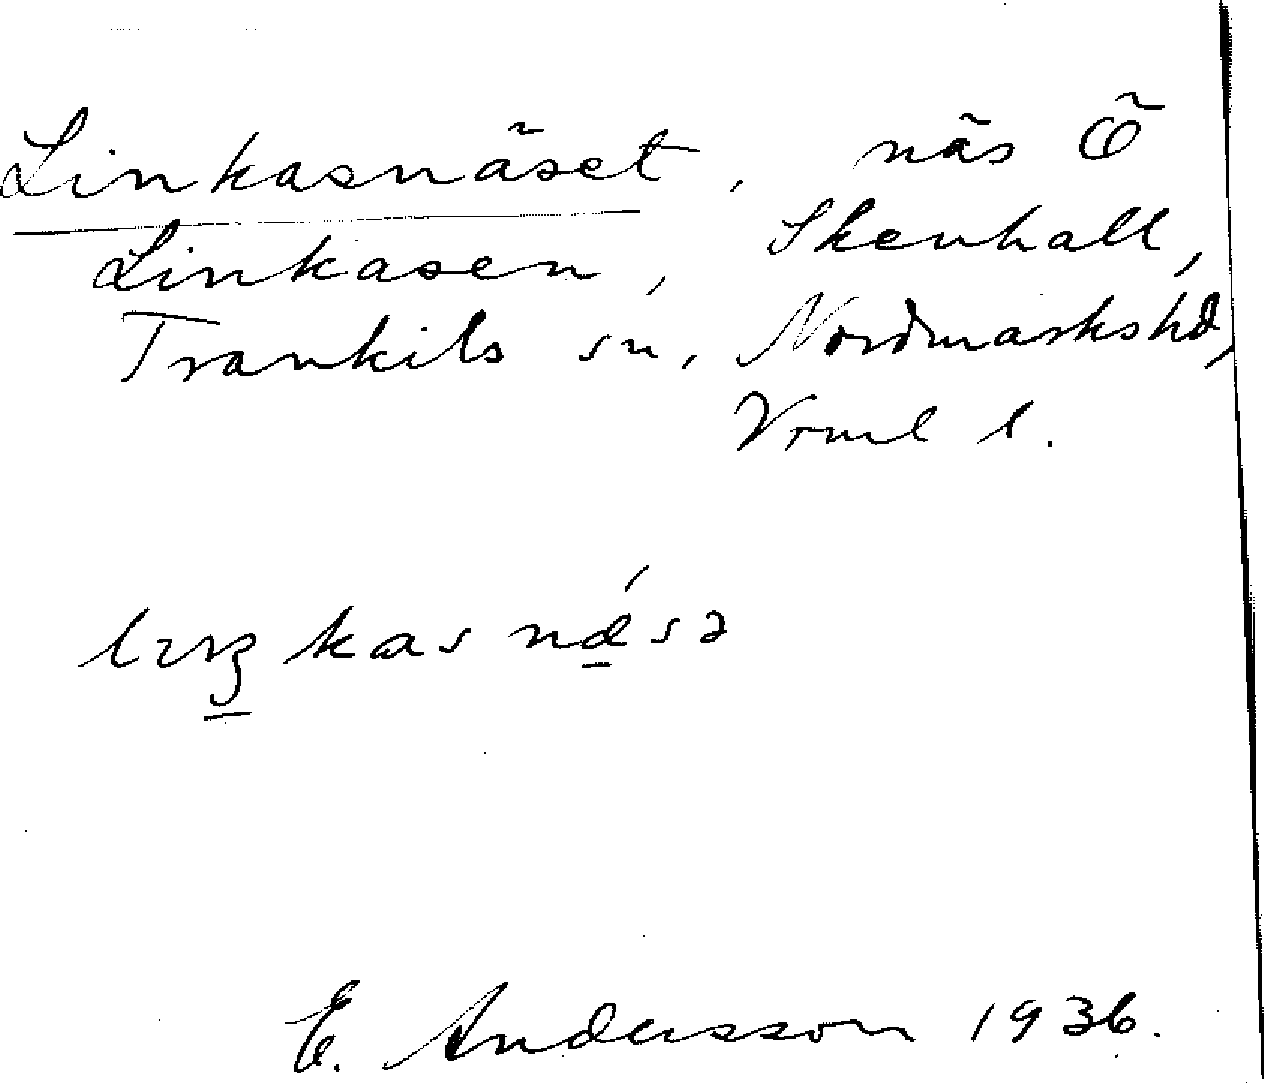 Linkasnäset, näs Ö
Linkasen, Skenhall,
Trankils sn, Nordmarkshd,
Vrml l.
kasnǽsə
E. Andersson 1936.